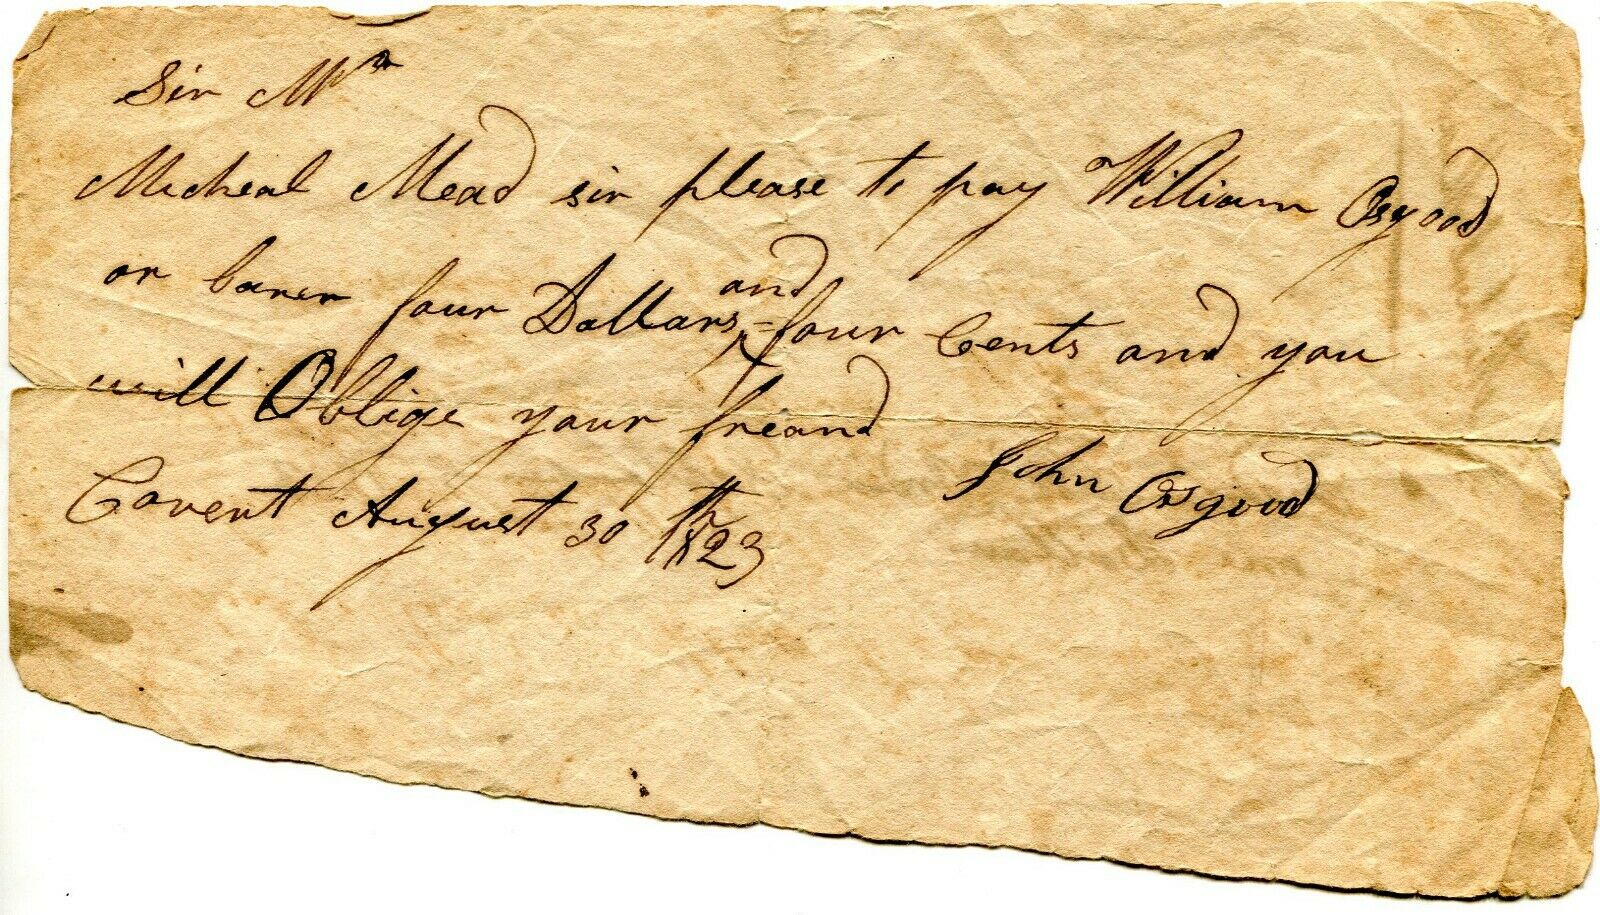 Sir Mr
Micheal Mead sir please to pay William Osgood
or barer four Dollars and four Cents and you
will Oblige your freand
John Osgood
Covent August 30th 1823